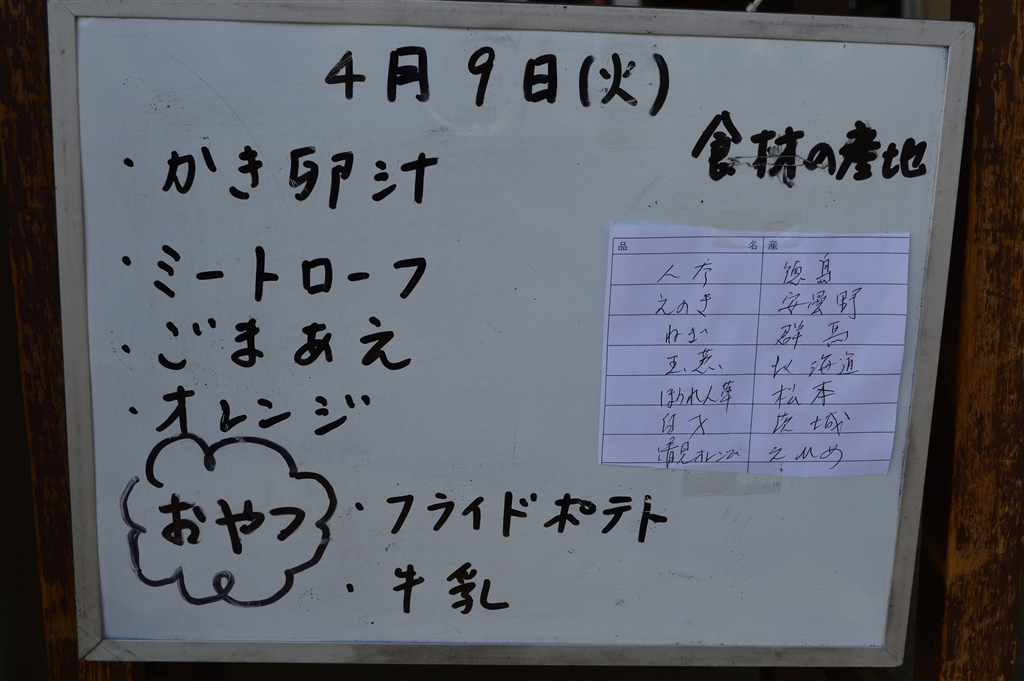 4月9日(火)
・かき卵汁
・ミートローフ
・ごまあえ
・オレンジ
おやつ
・フライドポテト
・牛乳
食材の産地
品名 産
人参 徳島
えのき 安曇野
ねぎ 群馬
玉葱 北海道
ほうれん草 松本
白才 茨城
清見オレンジ えひめ